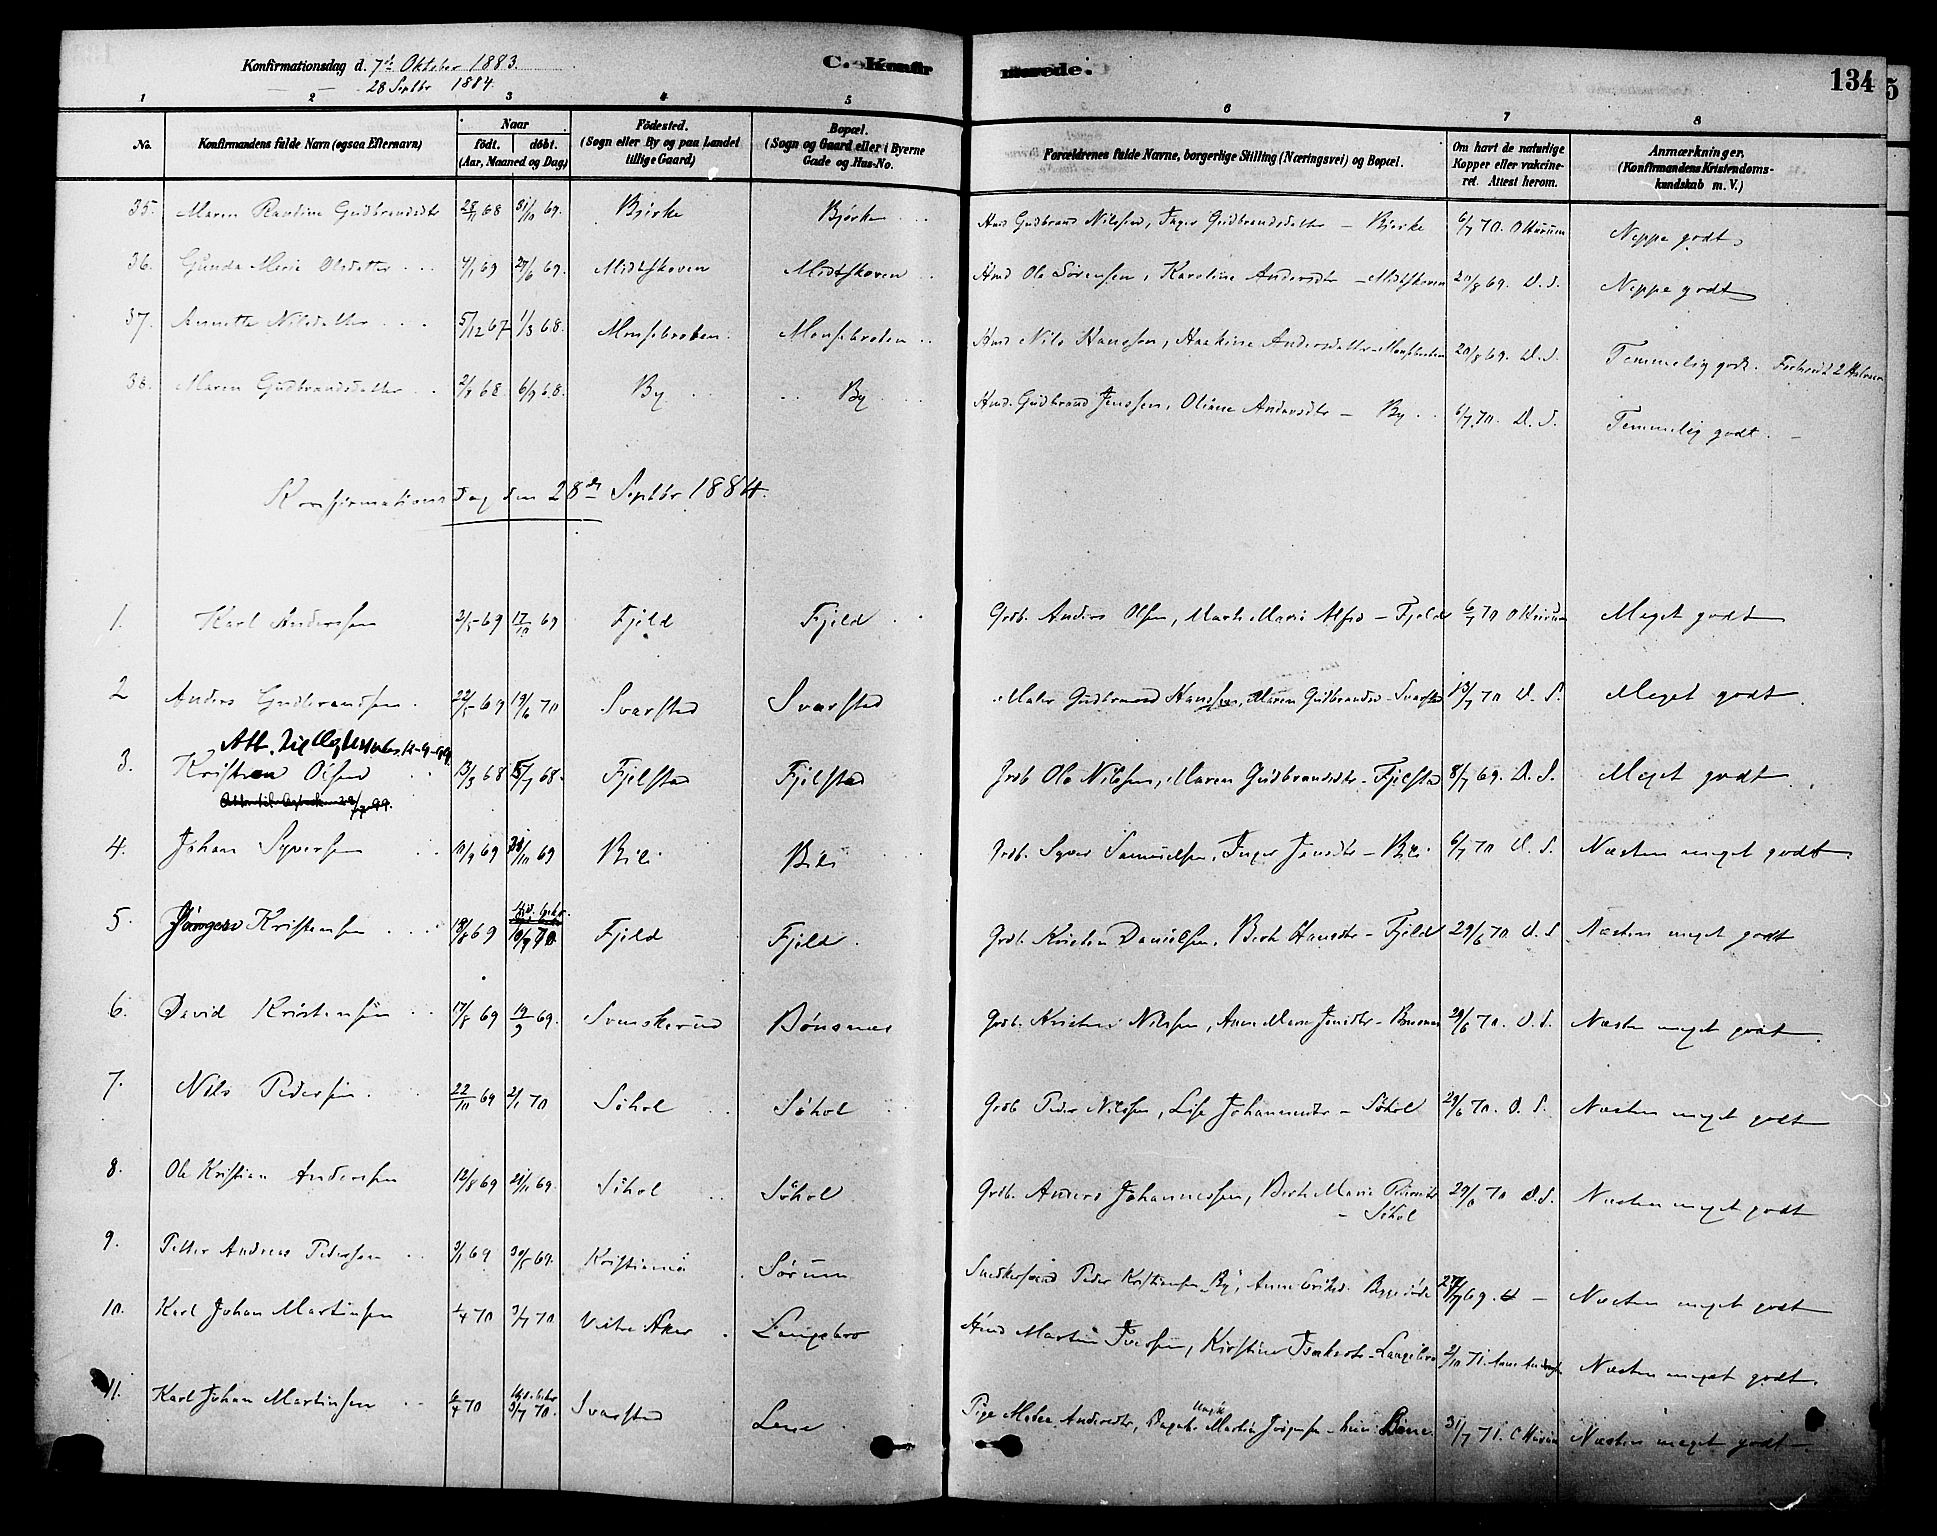 Konfirmationsdag d. 7de Oktober 1883. C. Konfirmerede. 134
28 Septbr 1884.
1 2 3 4 5 6 7 8
No. Konfirmandens fulde Navn (ogsaa Efternavn) Naar födt. döbt. (Aar, Maaned og Dag) Födested. (Sogn eller By og paa Landet tillige Gaard) Bopæl. (Sogn og Gaard eller i Byerne Gade og Hus-No. Forældrenes fulde Navne, borgerlige Stilling (Næringsvei) og Bopæl. Om havt de naturlige Kopper eller vakcineret. Attest herom. Anmærkninger. (Konfirmandens Kristendomskundskab m. V.)
35. Maren Randine Gudbrandsdtr 28/11 68 31/10 69. Bjerke Bjerke Hmd Gudbrand Nilssen, Inger Gudbrandsdatter - Bjerke 6/7 70. Neppe godt
36. Gunda Marie Olsdatter 4/1 69 27/6 69. Midtskoven Midtskoven Hmd Ole Sørensen, Karoline Andersdtr - Midtskoven 20/8 69. D. S. Neppe godt
37. Annette Nilsdatter 5/12 67 1/3 68. Monsebraten Monsebraten Hmd Nils Hansen, Andersdatter 20/8 69. D. S. Temmelig godt.
38. Maren Gudbrandsdatter 2/7 68. 6/9 68. By By Hmd. Gudbrand Jenssen, Oliane Andersdtr - By 6/7 70. D. S. Temmelig godt.
Konfirmations Dag den 28de Septbr 1884.
1. Karl Anderssen 2/5 69 17/10 69 Fjeld Fjeld Grdb. Anders Olsen, Marthe Marie - Fjeld 6/7 70 Meget godt
2 Anders Gudbrandsen. 22/5 69 19/6 70 Svarstad Svarstad Maler Gudbrand Hanssen, Maren Gudbrandsd - Svarstad 13/7 70 D. S. Meget godt.
3. Kristian Olsen 13/3 68 5/7 68. Fjelstad Fjelstad Grdb Ole Nilssen, Maren Gudbrandsdtr - Fjelstad 8/7 69. D. S. Meget godt
4. Johan Syversen 69 69 Bili Bili Grdb. Syver Samuelsen, Inger Jensdtr - Bili 6/7 70 D. S. Næsten meget godt.
5. Jørgen Kristensen 18/8 69 10/7 70. Fjeld Fjeld. Grdb. Kristen Danielsen, Berth Hansdtr - Fjeld 29/6 70. D. S Næsten meget godt
6. David Kristensen 17/8 69 19/9 69. Svenskerud Bønsnes Grdb. Kristen Nilssen, Anne Marie Jensdtr - 29/6 70. D. S. Næsten meget godt.
7. Nils Pedersen. 22/10 69 2/1 70 Søhol Søhol Grdb Peder Nilssen, Lise Johannesdtr - Søhol 29/6 70. D. S. Næsten meget godt
8. Ole Kristian Anderssen 12/8 69 21/11 69. Søhol Søhol Grdb. Anders Johannessen, Berthe Marie Pedersdtr - Søhol 29/6 70 D. S. Næsten meget godt
9. Petter Andreas Pedersen 3/1 69 30/5 69. Kristiania Sørum Snedkersvend Peder Kristiansen By, Anne Næsten meget godt
10. Karl Johan Martinsen 1/4 70 3/7 70 Vestre Aker Langebro Hmd Martin Iversen, Kirstine Isaksdtr - Langebro 2/10 71. Næsten meget godt.
11. Karl Johan Martinsen 6/4 70 3/7 70. Svarstad Lene Pige Andersdtr, Martin Jørgensen 31/7 71. Næsten meget godt.